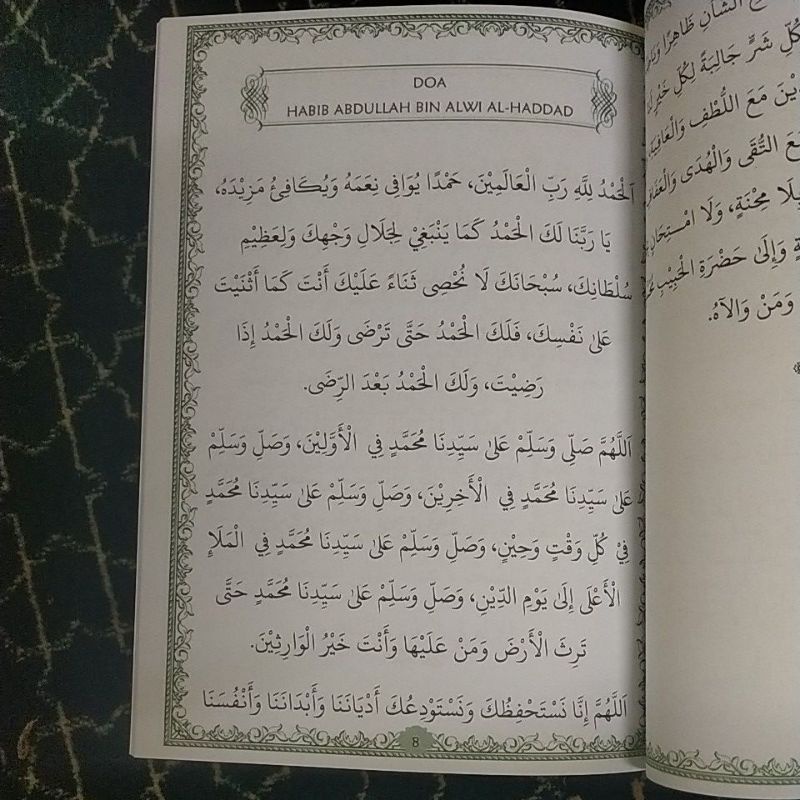 DOA
HABIB ABDULLAH BIN ALWI AL-HADDAD
اَلْحَمْدُ لِلَّهِ رَبِّ الْعَالَمِيْنَ، حَمْدًا يُوَافِى نِعَمَهُ وَيُكَافِئُ مَزِيْدَهُ،
يَا رَبَّنَا لَكَ الْحَمْدُ كَمَا يَنْبَغِيْ لِجَلَالِ وَجْهِكَ وَلِعَظِيْمِ
سُلْطَانِكَ، سُبْحَانَكَ لَا نُحْصِى ثَنَاءً عَلَيْكَ أَنْتَ كَمَا أَثْنَيْتَ
عَلَى نَفْسِكَ، فَلَكَ الْحَمْدُ حَتَّى تَرْضَى وَلَكَ الْحَمْدُ إِذَا
رَضِيْتَ، وَلَكَ الْحَمْدُ بَعْدَ الرِّضَى.
اَللَّهُمَّ صَلِّى وَسَلِّمْ عَلَى سَيِّدِنَا مُحَمَّدٍ فِي الْأَوَّلِيْنَ، وَصَلِّ وَسَلِّمْ
عَلَى سَيِّدِنَا مُحَمَّدٍ فِي الْأَخِرِيْنَ، وَصَلِّ وَسَلِّمْ عَلَى سَيِّدِنَا مُحَمَّدٍ
فِيْ كُلِّ وَقْتٍ وَحِيْنٍ، وَصَلِّ وَسَلِّمْ عَلَى سَيِّدِنَا مُحَمَّدٍ فِي الْمَلَإِ
الْأَعْلَى إِلَى يَوْمِ الدِّيْنِ، وَصَلِّ وَسَلِّمْ عَلَى سَيِّدِنَا مُحَمَّدٍ حَتَّى
تَرِثَ الْأَرْضَ وَمَنْ عَلَيْهَا وَأَنْتَ خَيْرُ الْوَارِثِيْنَ.
اَللَّهُمَّ إِنَّا نَسْتَحْفِظُكَ وَنَسْتَوْدِعُكَ أَدْيَانَنَا وَأَبْدَانَنَا وَأَنْفُسَنَا
8
الشَّانِ ظَاهِرًا
كُلِّ شَرٍّ جَالِبَةً لِكُلِّ خَيْرٍ
مَعَ اللُّطْفِ وَالْعَافِيَةِ
التُّقَى وَالْهُدَى
بِلَا مِحْنَةٍ، وَلَا امْتِحَانٍ
وَإِلَى حَضْرَةِ الْحَبِيْبِ
وَمَنْ وَالَاهُ.